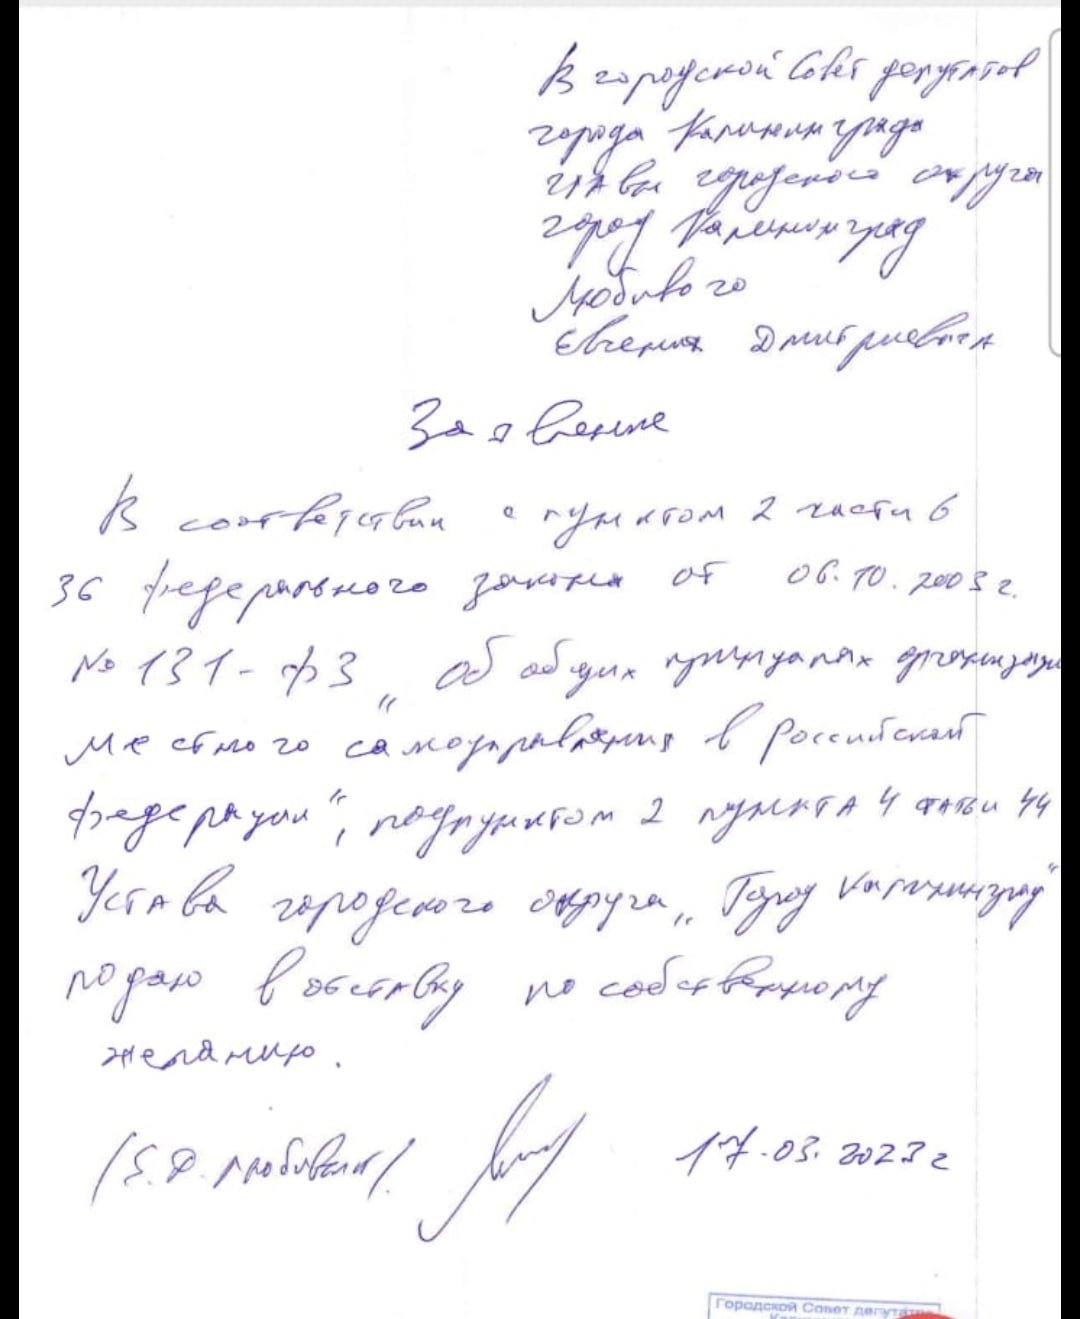 В городской Совет депутатов
города Калининграда
главы городского округа
город Калининград
Любивого
Евгения Дмитриевича
Заявление
В соответствии с пунктом 2 части 6
36 федерального закона от 06.10.2003 г.
№ 131-ФЗ „Об общих принципах организации
местного самоуправления в Российской
федерации“, подпунктом 2 пункта 4 статьи 44
Устава городского округа „Город Калининград“
подаю в отставку по собственному
желанию.
/Е.Д. Любивый/. 17.03.2023 г
Городской Совет депутатов